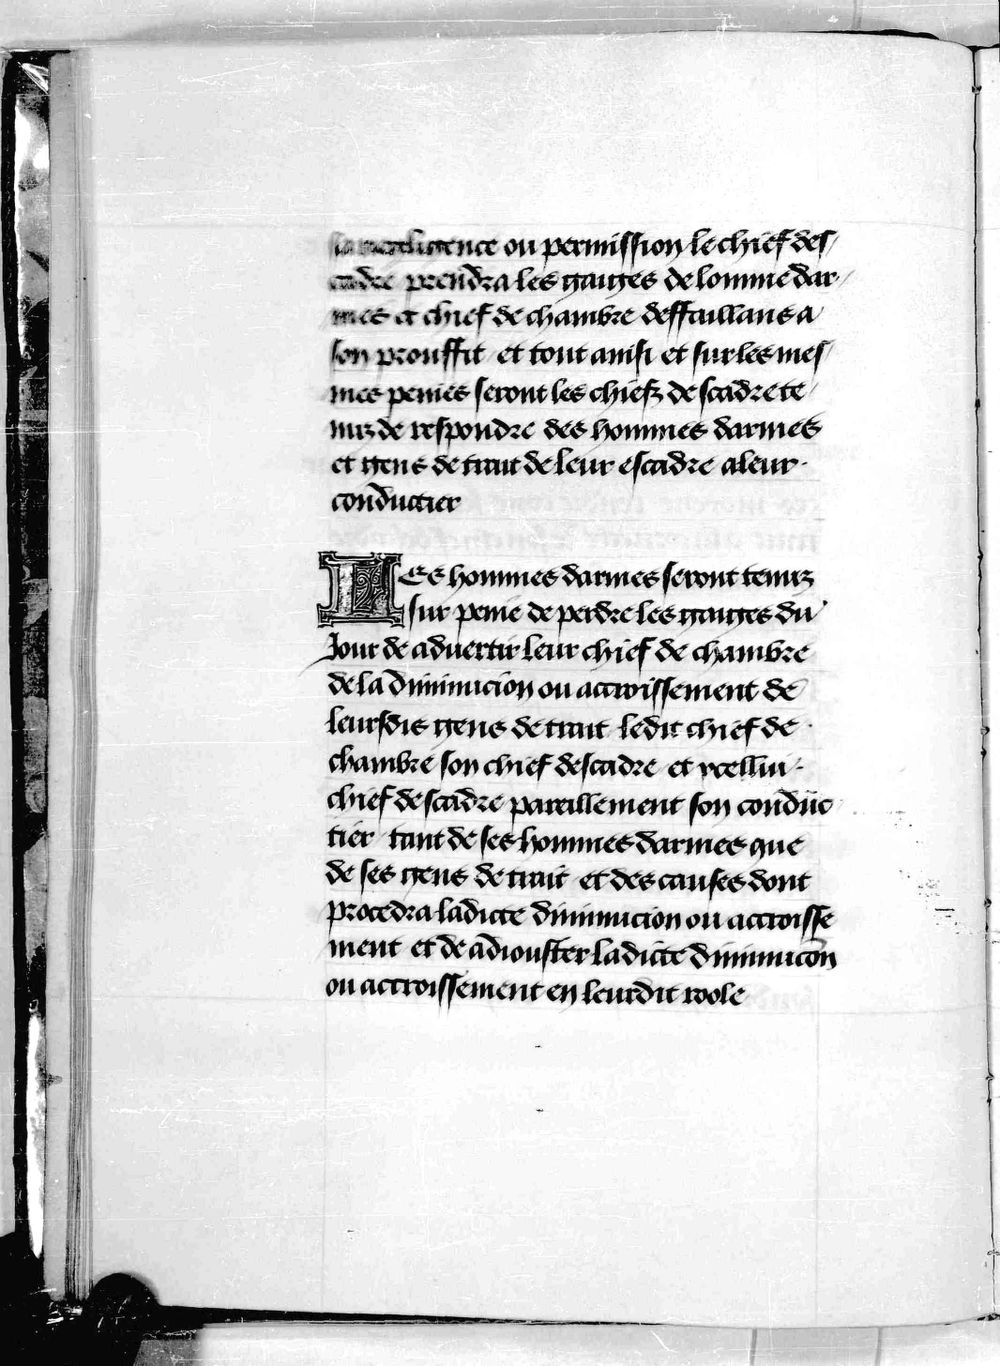 sa negligence ou permission le chief des
cadre prendra les gaiges de lomme dar
mes et chief de chambre deffaillans a
son prouffit et tout ainsi et sur les mes
mes peines seront les chiefz descadre te
nuz de respondre des hommes darmes
et gens de trait de leur escadre a leur
conductier
Les hommes darmes seront tenuz
sur peine de perdre les gaiges du
Jour de advertir leur chief de chambre
de la diminucion ou accroissement de
leursdis gens de trait ledit chief de
chambre son chief descadre et ycellui
chief descadre pareillement son conduc
tier tant de ses hommes darmes que
de ses gens de trait et des causes dont
procedra ladicte diminucion ou accroisse
ment et de adiouster ladicte diminucon
ou accroissement en leurdit roole